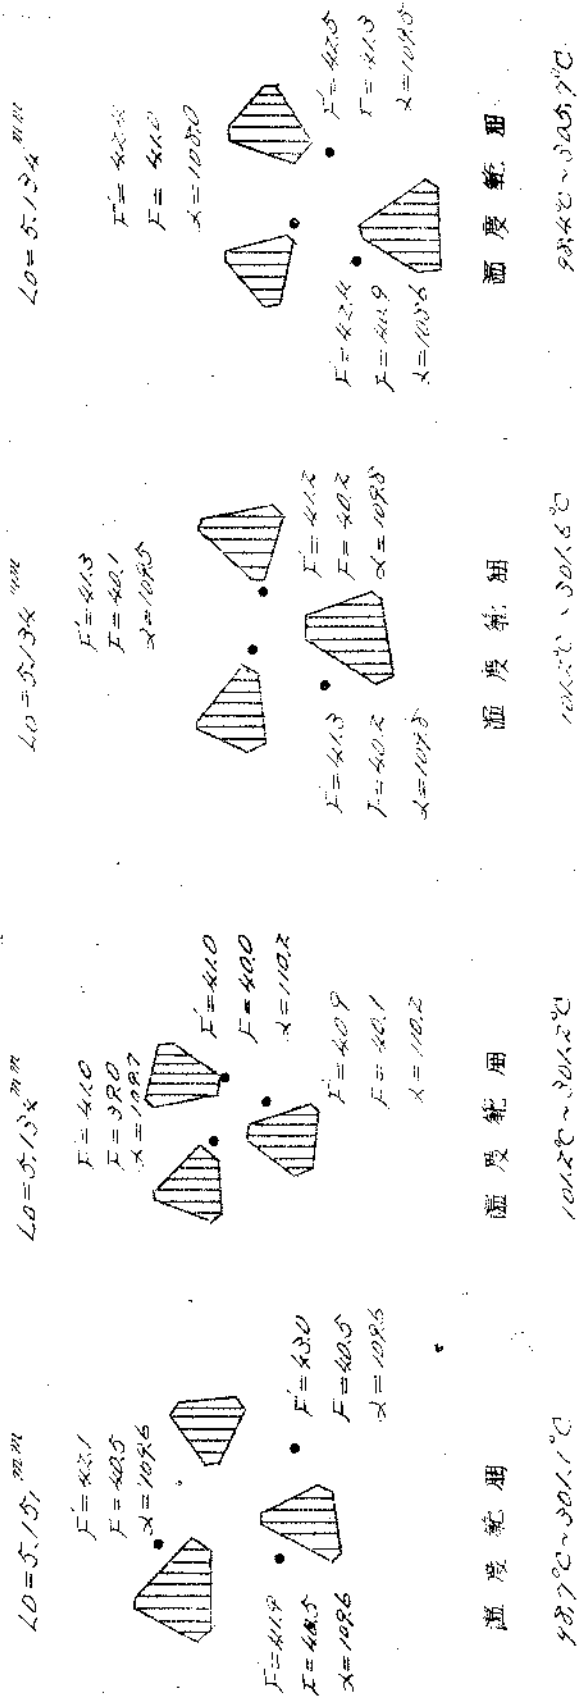 L0=5.151 mm
F'=42.1
F=40.5
α=109.6
F'=41.9
F=40.5
α=109.6
F'=43.0
F=40.5
α=109.6
温度範囲
98.7℃~301.1℃
L0=5.134 mm
F'=41.0
F=39.0
α=109.7
F'=41.0
F=40.0
α=110.2
F'=40.9
F=40.1
α=110.2
温度範囲
101.2℃~301.2℃
L0=5.134 mm
F'=41.3
F=40.1
α=109.5
F'=41.3
F=40.2
α=109.8
F'=41.2
F=40.2
α=109.8
温度範囲
101.2℃~301.6℃
L0=5.134 mm
F=41.0
F'=42.4
F=40.9
α=108.6
F'=42.5
F=41.3
α=109.5
温度範囲
98.4℃~305.7℃